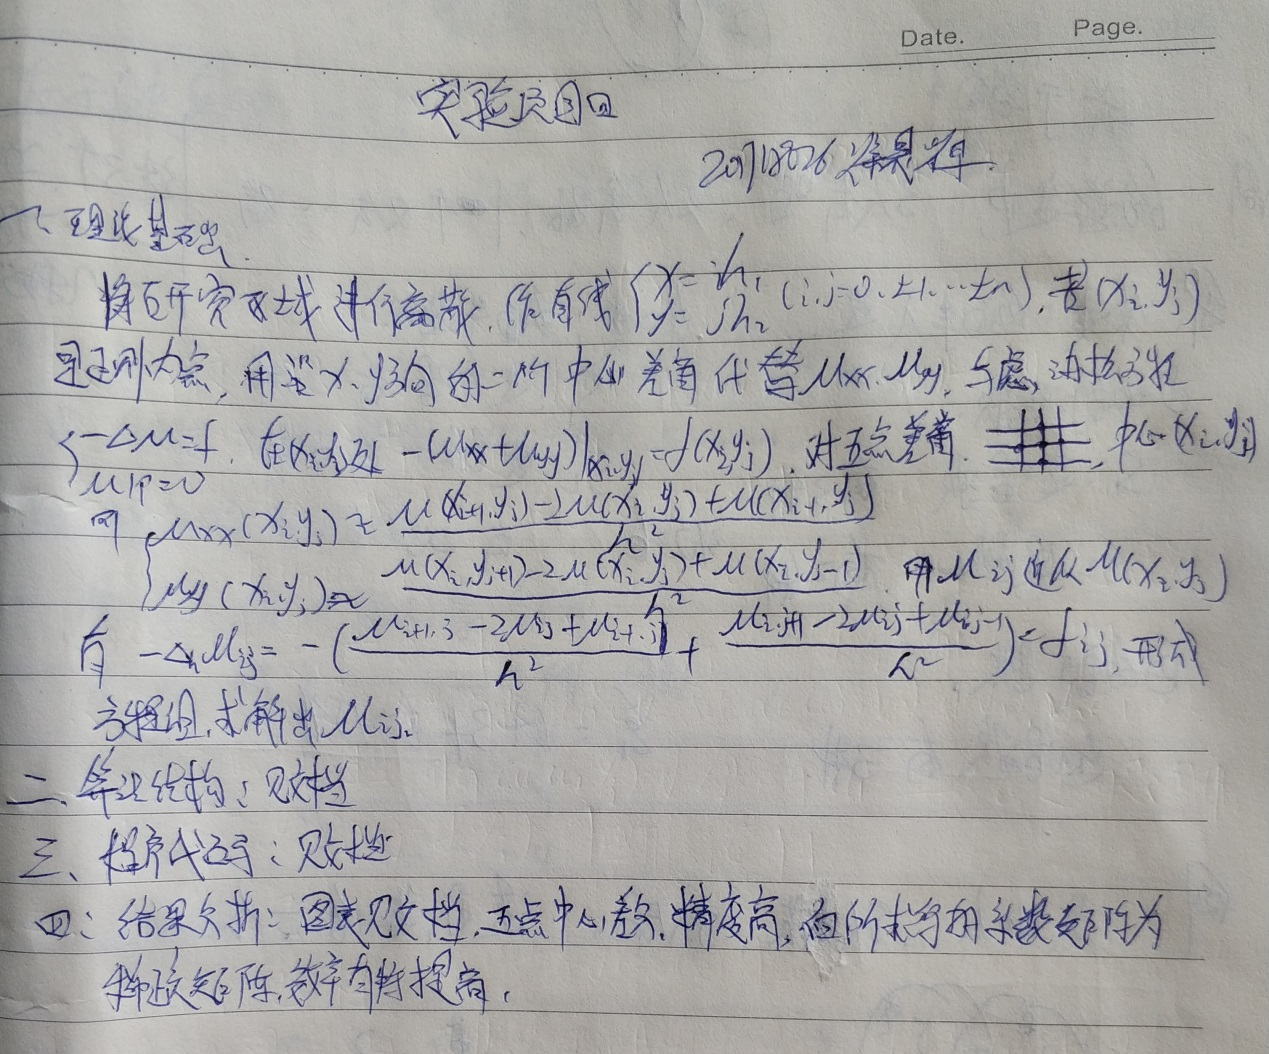 Date. Page.
实验项目四
20718026 徐昊
一、理论基础.
将研究区域进行离散,作直线 {x=ih₁ y=jh₂ (i,j=0,±1,…±n),若(xᵢ,yⱼ)
是正则内点,用沿x,y方向的二阶中心差商代替uxx,uyy,考虑泊松方程
{-Δu=f u|Γ=0 .在(xᵢ,yⱼ)处 -(uxx+uyy)|xᵢ,yⱼ=f(xᵢ,yⱼ),对五点差商. ,中心(xᵢ,yⱼ)
可 {uxx(xᵢ,yⱼ)≈ (u(xᵢ₊₁,yⱼ)-2u(xᵢ,yⱼ)+u(xᵢ₊₁,yⱼ))/h²
uyy(xᵢ,yⱼ)≈ (u(xᵢ,yⱼ+1)-2u(xᵢ,yⱼ)+u(xᵢ,yⱼ-1))/h² 用uᵢⱼ近似u(xᵢ,yⱼ)
有 -Δₕuᵢⱼ=-((uᵢ₊₁,ⱼ-2uᵢⱼ+uᵢ₊₁,ⱼ)/h² + (uᵢ,ⱼ₊₁-2uᵢⱼ+uᵢⱼ₋₁)/h²)=fᵢⱼ,形成
方程组,求解出uᵢⱼ.
二、算法结构:见文档
三、程序代码:见文档
四:结果分析:图表见文档,五点中心差分,精度高,但所求得的系数矩阵为
稀疏矩阵,效率有待提高.